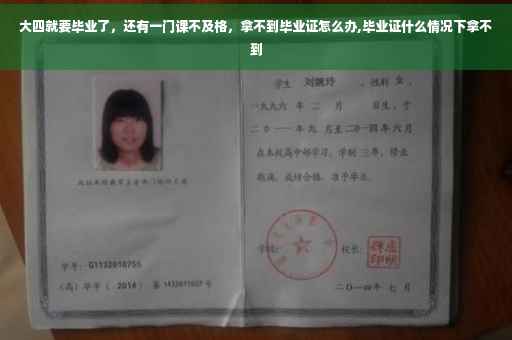 大四就要毕业了，还有一门课不及格，拿不到毕业证怎么办,毕业证什么情况下拿不
到
学生 刘婉玲 ，性别 女 ，
一九九六 年 二 月 日生，于
二〇一一年 九 月至 二〇一四年 六 月
在本校高中部学习，学制 三年，修业
期满，成绩合格，准予毕业。
学校：
校长：
学号：G1132010755
（高）毕字（ 2014 ）第 1432011027 号
二〇一四年 七 月